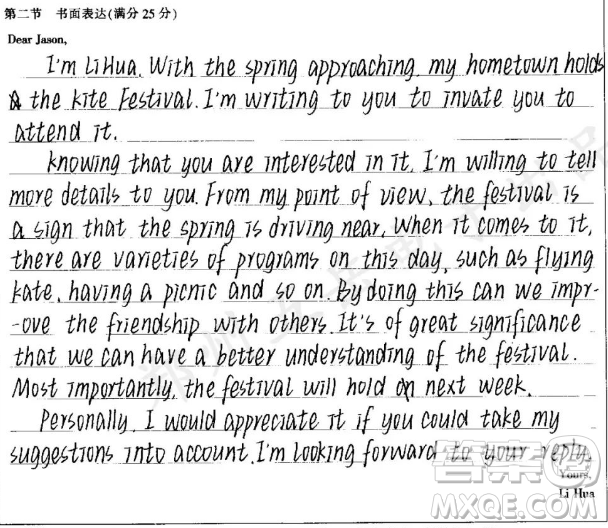 第二节 书面表达(满分25分)
Dear Jason,
I'm LiHua. With the spring approaching, my hometown holds
the kite Festival. I'm writing to you to invate you to
attend it.
knowing that you are interested in it, I'm willing to tell
more details to you. From my point of view, the festival is
a sign that the spring is driving near, When it comes to it,
there are varieties of programs on this day, such as flying
kate, having a picnic and so on. By doing this can we impr-
-ove the friendship with others. It's of great significance
that we can have a better understanding of the festival.
Most importantly, the festival will hold on next week.
Personally, I would appreciate it if you could take my
suggestions into account. I'm looking forward to your reply.
Yours,
Li Hua
答案圈
MXQE.COM